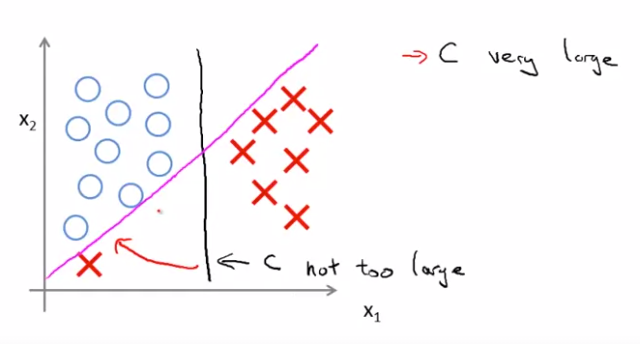 → C very large
x2
← C not too large
x1